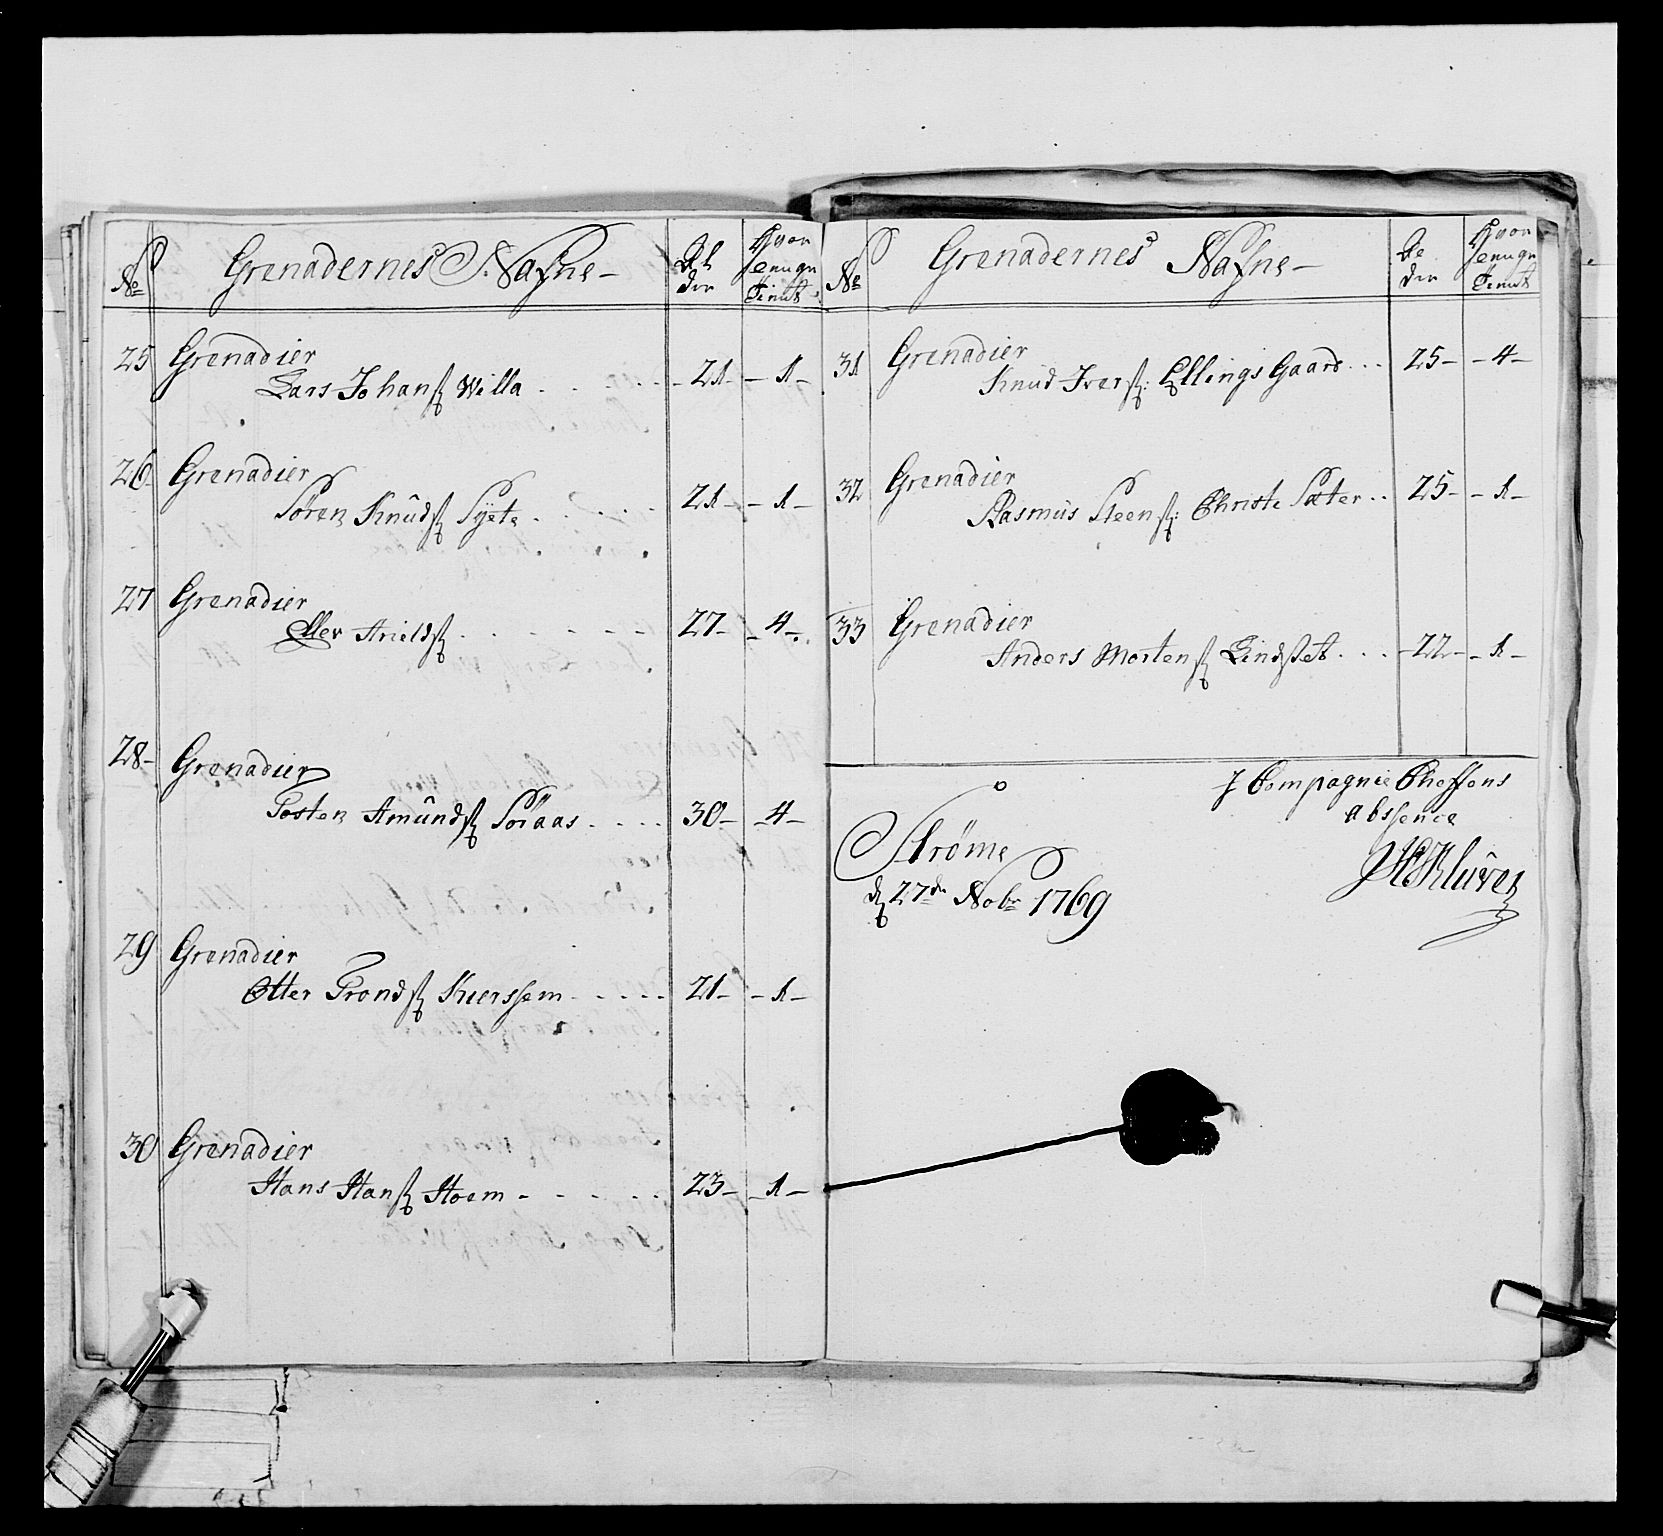 No Grenadernes Nafne - Al der Hvor lenge Tient
25 Grenadier
Lars Johans Willa - 21 - - 1 -
26 Grenadier
Sören Knuds Syete 21 - - 1 -
27 Grenadier
Arields 27 - - 4 -
28 - Grenadier
Tosten Amunds Söraas 30 - - 4 -
29 Grenadier
Otter Tronds 21 - - 1 -
30 Grenadier
Hans Hans Hoem 23 - - 1 -
No Grenadernes Nafne - Al der Hvor lenge Tient
31 Grenadier
Knud Ivers: Ellings Gaard 25 - - 4 -
32 Grenadier
Rasmus Steens: Christe Sæter 25 - - 1 -
33 Grenadier
Anders Mortens Lindstet - 22 - - 1 -
I Compagnie Cheffens
abssence
Strøme
d 27de Nobr 1769
Klüver